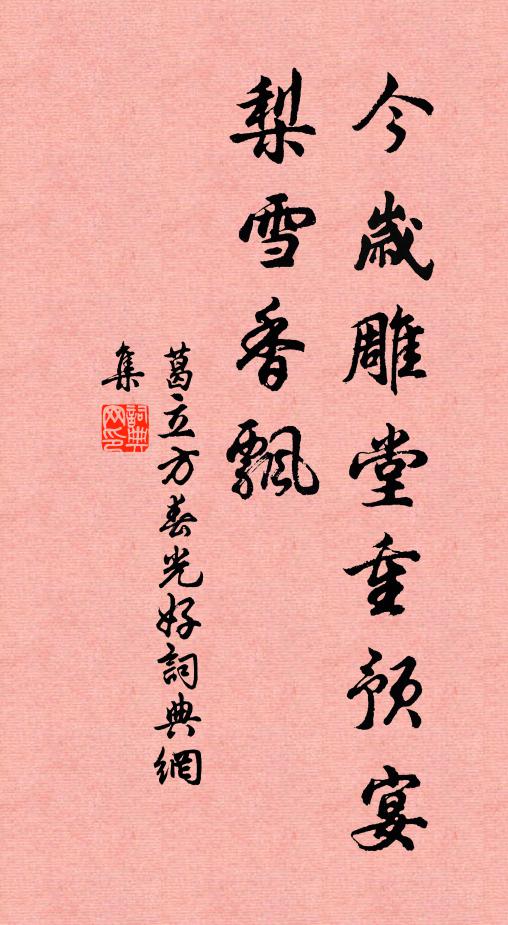 今歲雕堂重預宴
梨雪香飄
葛立方春光好詞典網
集
詞典
网印